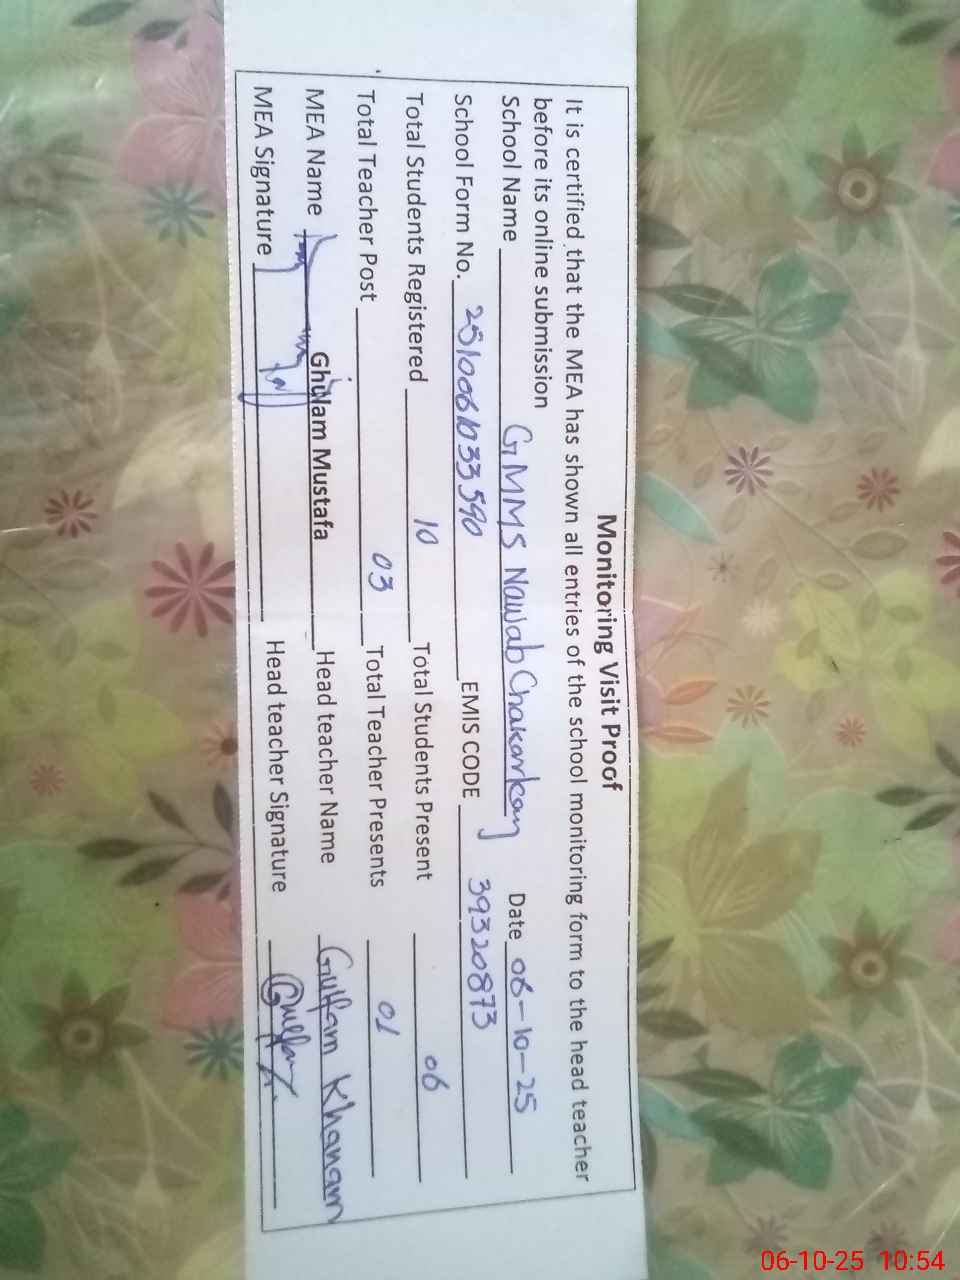 Monitoring Visit Proof
It is certified that the MEA has shown all entries of the school monitoring form to the head teacher
before its online submission
School Name GMMS Nawab Chakarkay Date 06-10-25
School Form No. 2510061033590 EMIS CODE 39320873
Total Students Registered 10 Total Students Present 06
Total Teacher Post 03 Total Teacher Presents 01
MEA Name Ghulam Mustafa Head teacher Name Gulfam Khanam
MEA Signature Head teacher Signature Gulfam
06-10-25 10:54